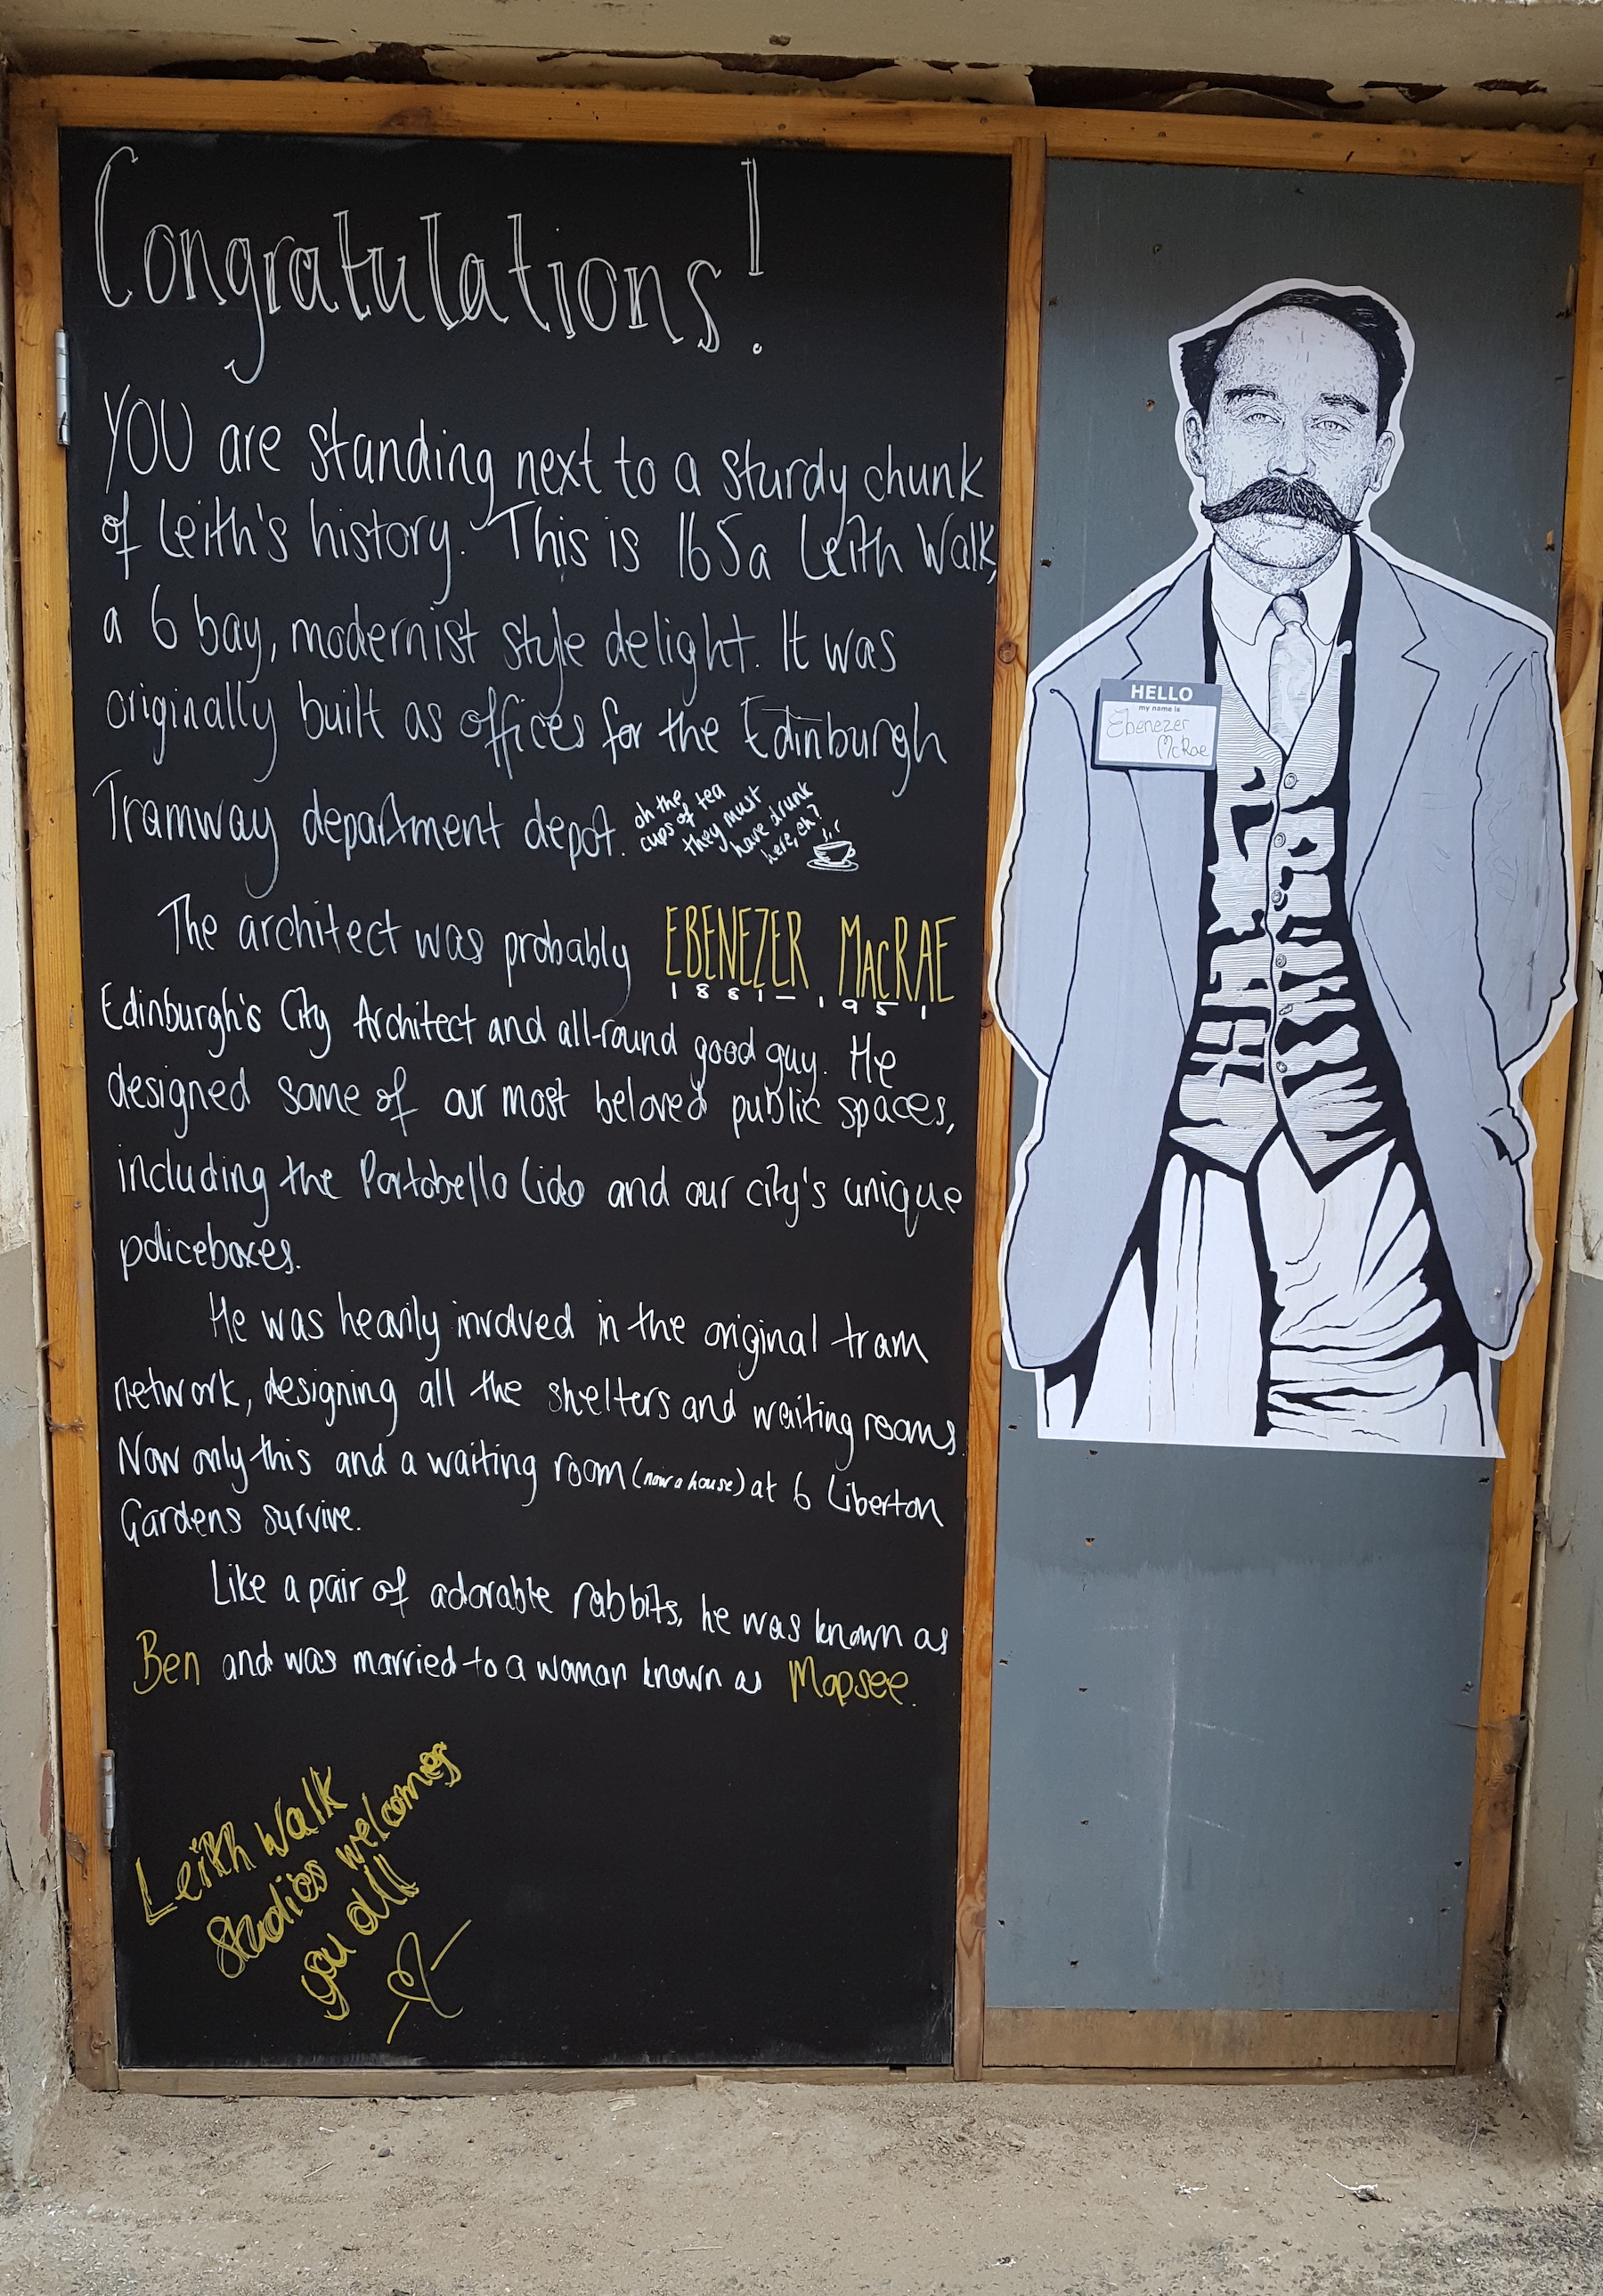 Congratulations!
YOU are standing next to a sturdy chunk
of Leith's history. This is 165a Leith Walk,
a 6 bay, modernist style delight. It was
originally built as offices for the Edinburgh
Tramway department depot.
oh the
cups of tea
they must
have drunk
here, eh?
The architect was probably EBENEZER MacRAE
1881-1951
Edinburgh's City Architect and all-round good guy. He
designed some of our most beloved public spaces,
including the Portobello Lido and our city's unique
policeboxes.
He was heavily involved in the original tram
network, designing all the shelters and waiting rooms.
Now only this and a waiting room (now a house) at 6 Liberton
Gardens survive.
Like a pair of adorable rabbits, he was known as
Ben and was married to a woman known as Mopsee.
Leith Walk
Studios welcomes
you all
HELLO
my name is
Ebenezer
McRae